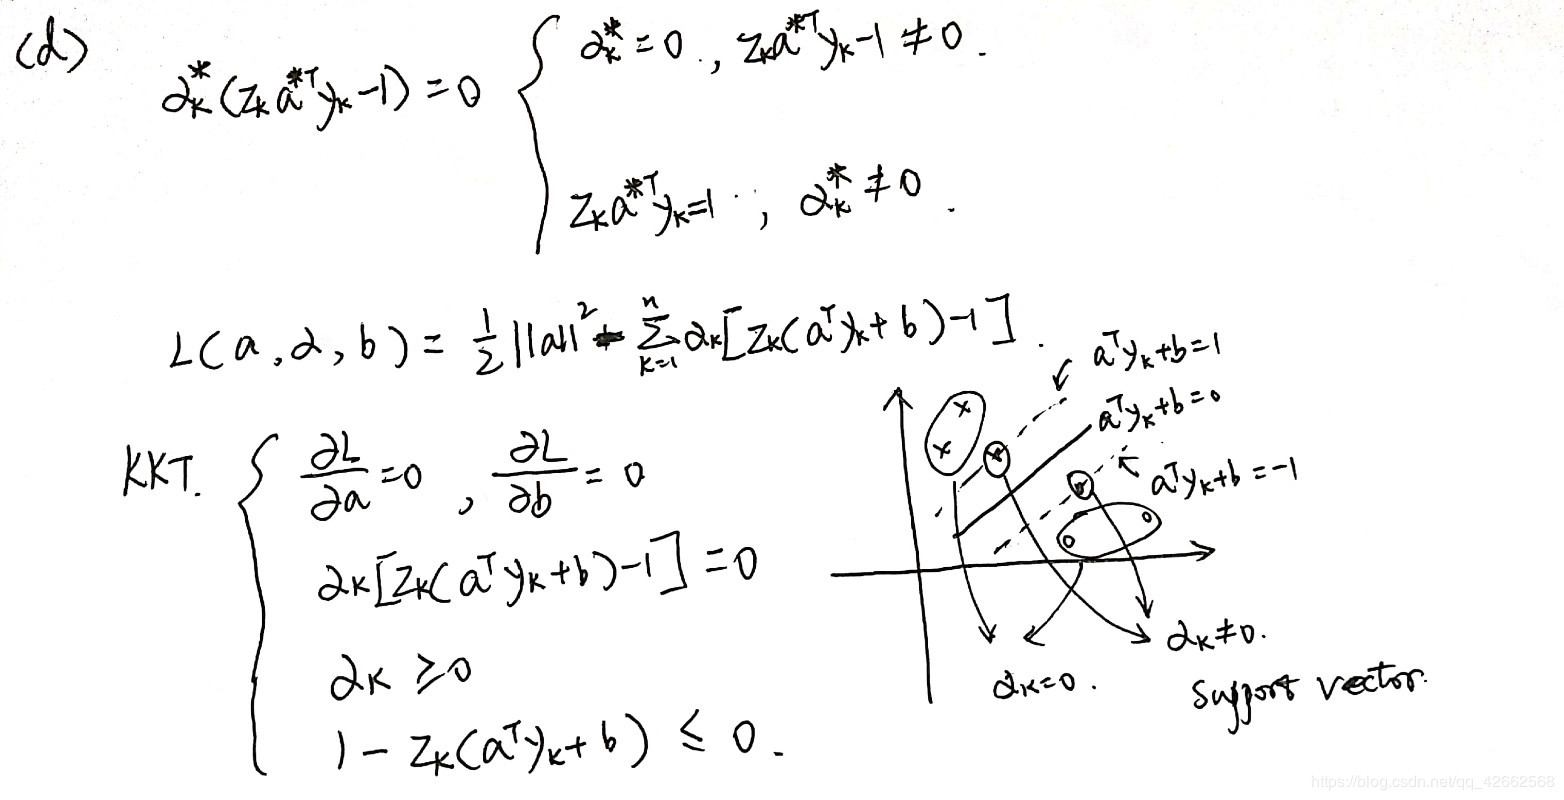 (d)
α_k^*(z_k a^{*T} y_k - 1) = 0 { α_k^* = 0 , z_k a^{*T} y_k - 1 ≠ 0 .
z_k a^{*T} y_k = 1 , α_k^* ≠ 0 .
L(a, α, b) = 1/2 ||a||^2 - Σ_{k=1}^{n} α_k [z_k(a^T y_k + b) - 1] .
KKT. { ∂L/∂a = 0 , ∂L/∂b = 0
α_k [z_k(a^T y_k + b) - 1] = 0
α_k ≥ 0
1 - z_k(a^T y_k + b) ≤ 0 .
a^T y_k + b = 1
a^T y_k + b = 0
a^T y_k + b = -1
α_k ≠ 0 .
α_k = 0 .
support vector.
https://blog.csdn.net/qq_42662568